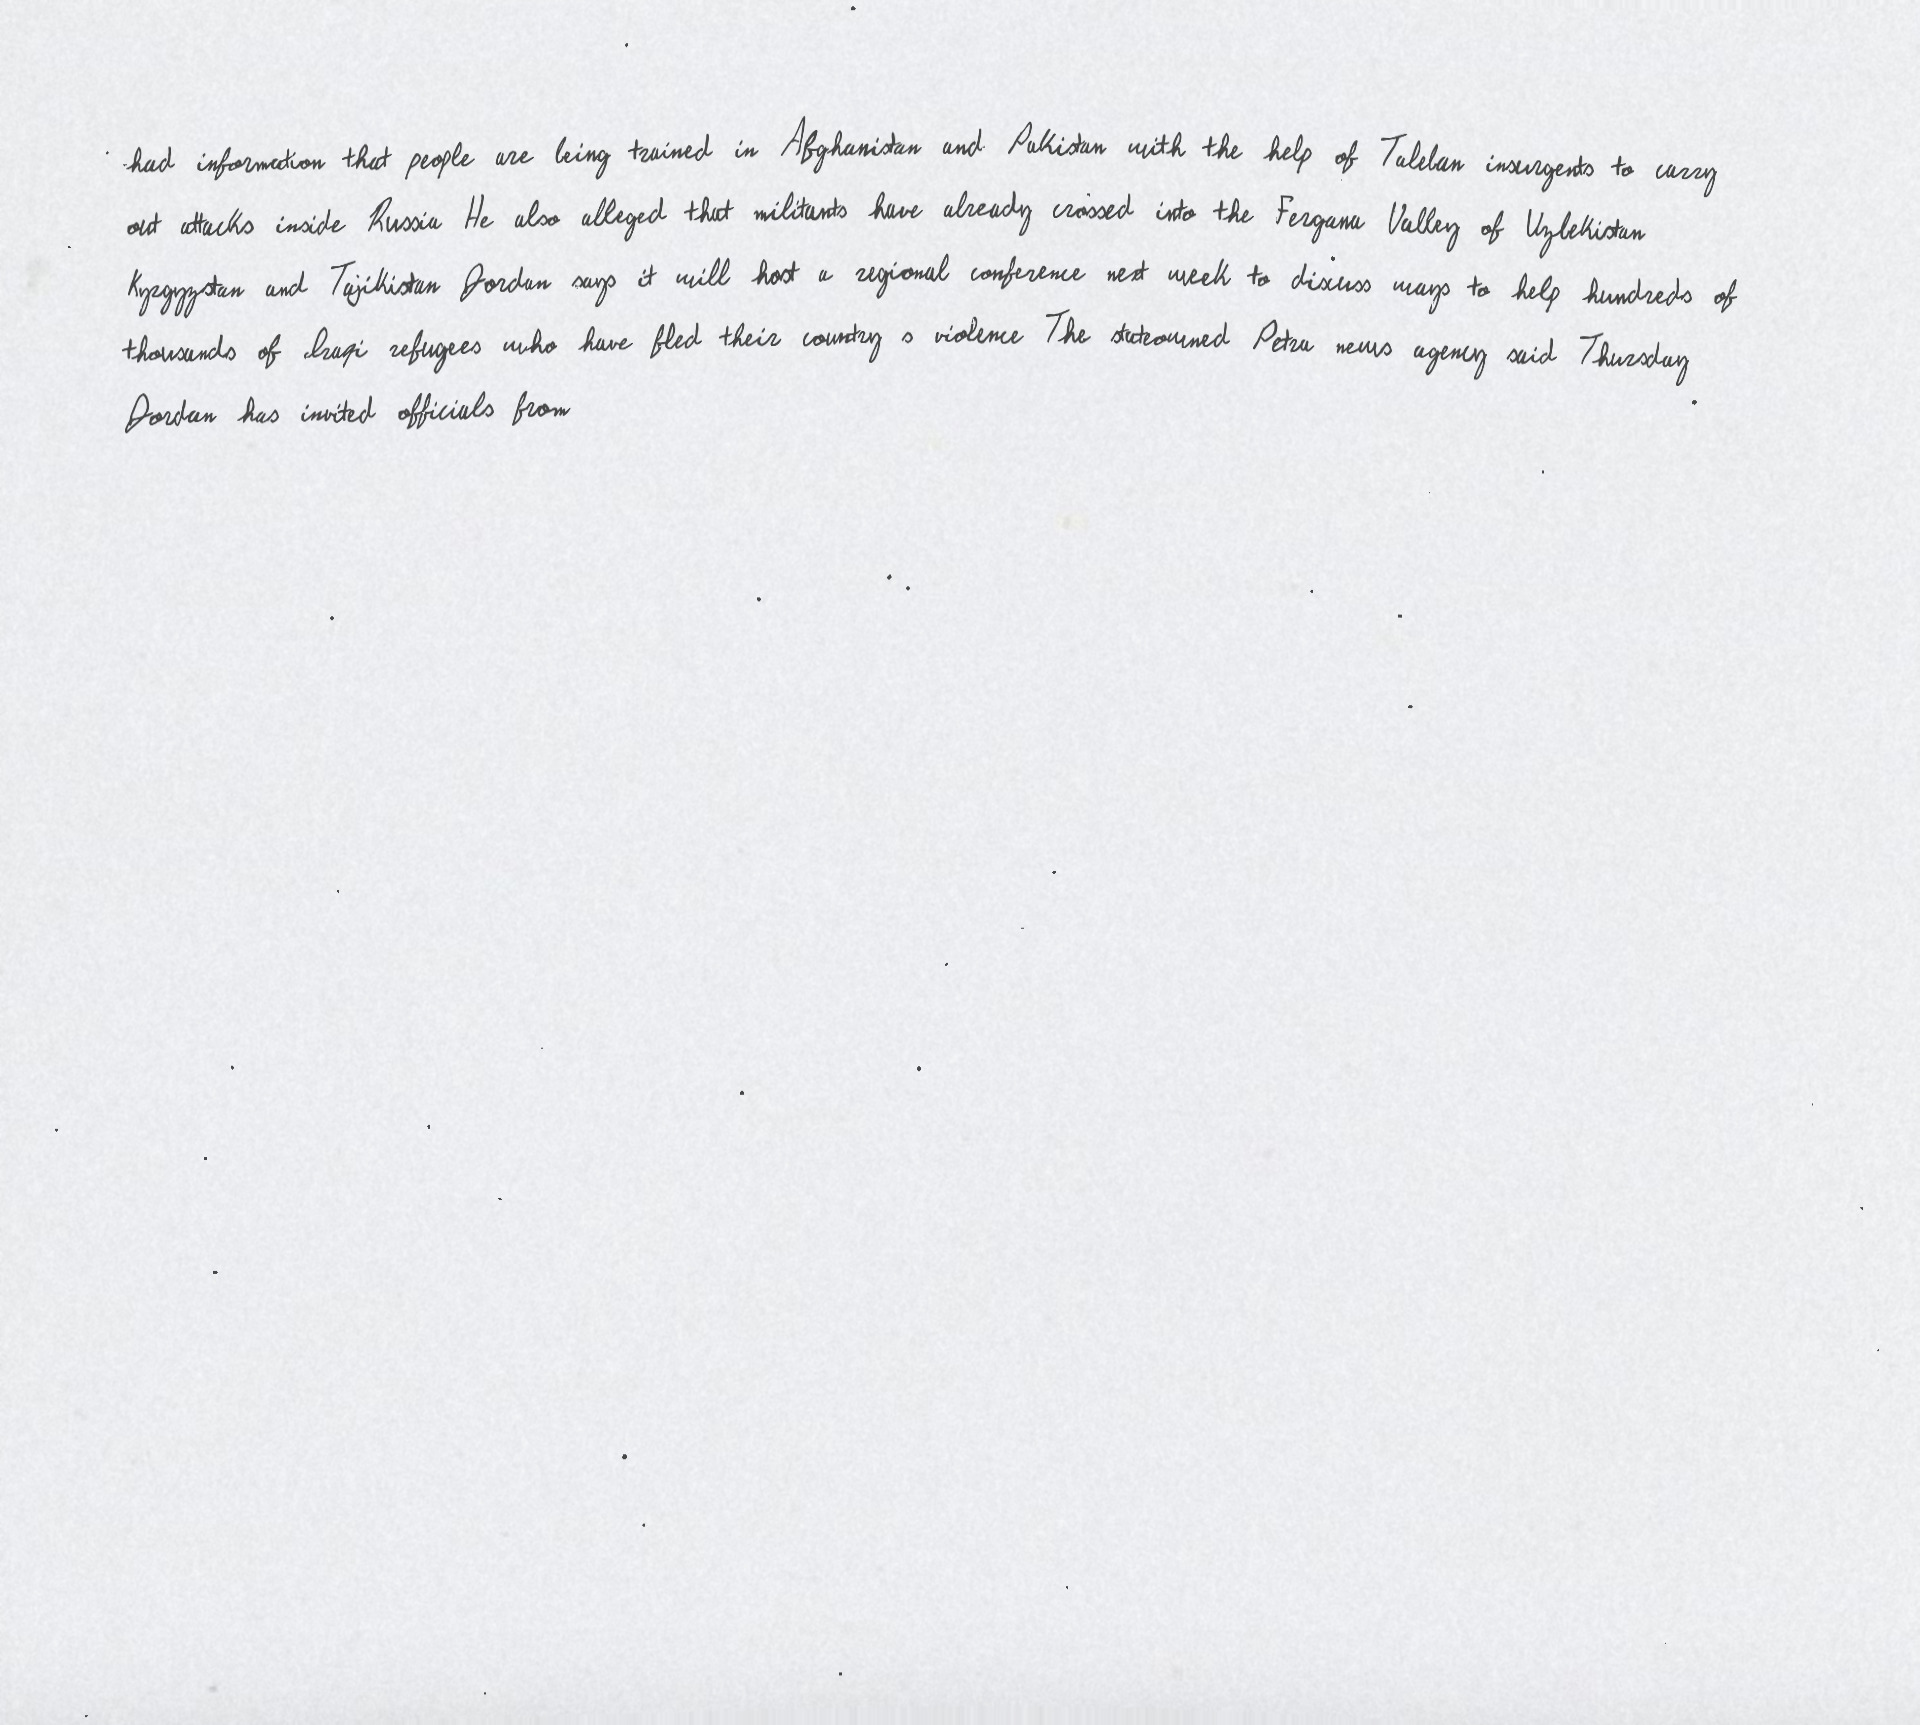 had information that people are being trained in Afghanistan and Pakistan with the help of Taleban insurgents to carry
out attacks inside Russia He also alleged that militants have already crossed into the Fergana Valley of Uzbekistan
Kyrgyzstan and Tajikistan Jordan says it will host a regional conference next week to discuss ways to help hundreds of
thousands of Iraqi refugees who have fled their country s violence The stateowned Petra news agency said Thursday
Jordan has invited officials from